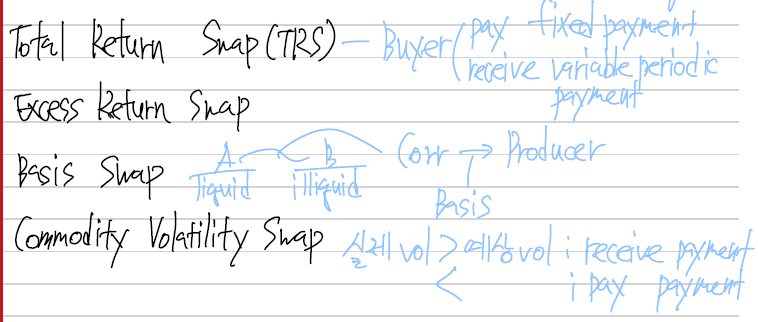 Total Return Swap (TRS) — Buyer ( pay fixed payment
receive variable periodic
payment
Excess Return Swap
Basis Swap A liquid B illiquid Corr → Producer
Basis
Commodity Volatility Swap 실제 vol > 예상 vol : receive payment
< : pay payment